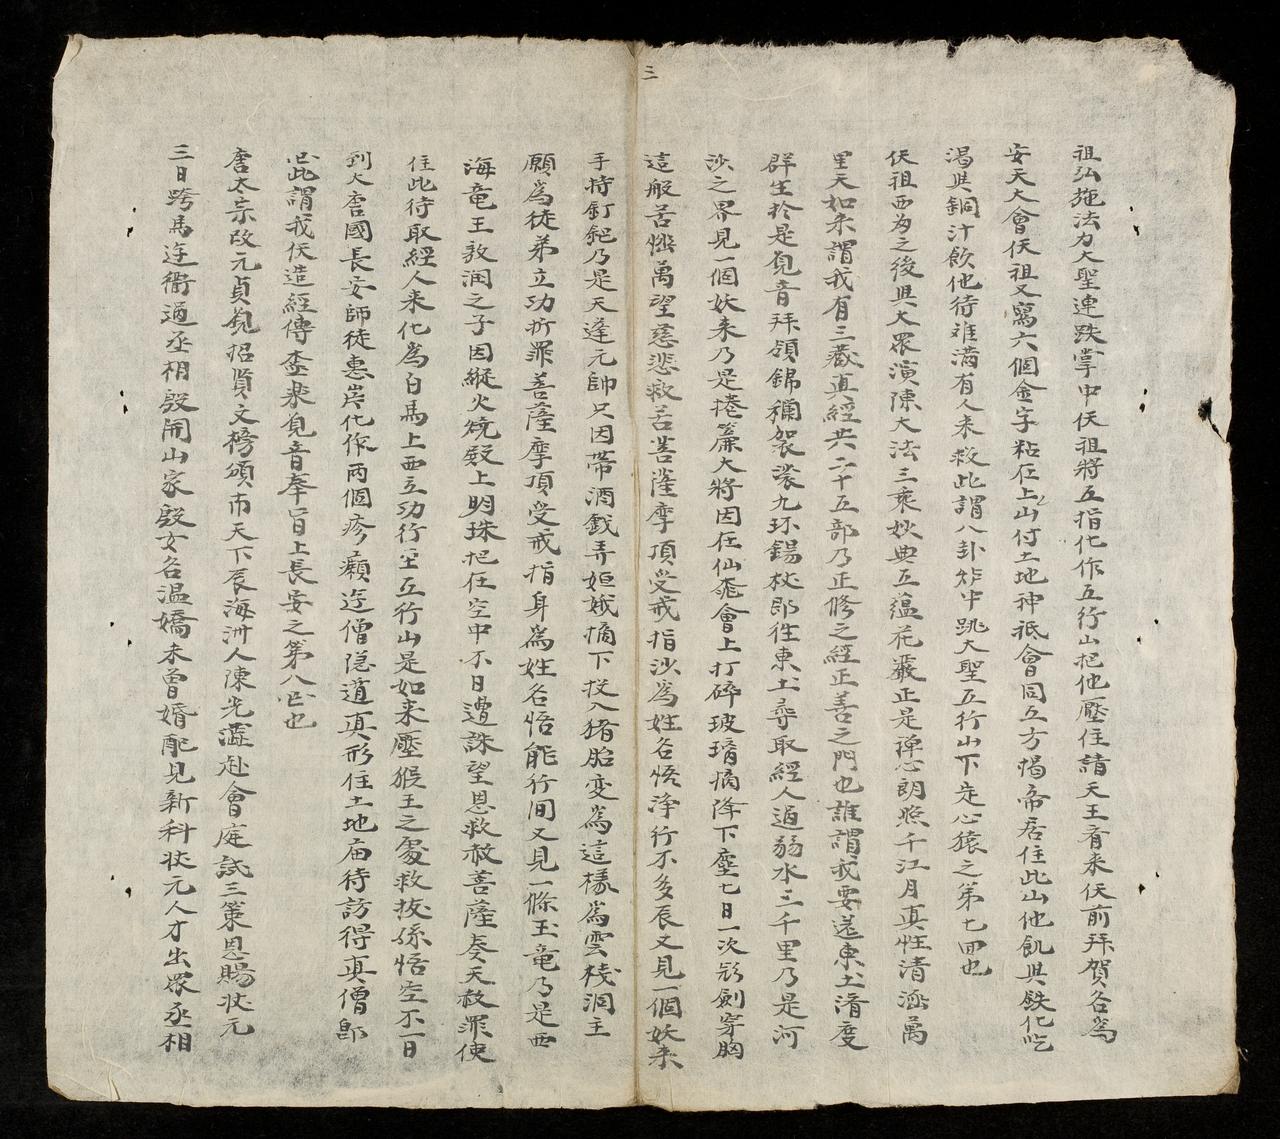 三
祖弘施法力大聖連跌掌中伏祖將五指化作五行山把他壓住請天王看来伏前拜賀名為
安天大會伏祖又寫六個金字粘在上山付土地神祇會同五方揭帝居住此山他飢與鉄化吃
渴與銅汁飲他待难满有人来救此謂八卦炉中跳大聖五行山下定心猿之第七囬也
伏祖西为之後與大眾演陳大法三乘妙典五藴花嚴正是禅心朗照千江月真性清涵萬
里天如来謂我有三藏真經共三十五部乃正修之經正善之門也誰謂我要送東土濟度
群生於是覓音拜領錦襴袈裟九环錫杖郎徃東土尋取經人過弱水三千里乃是河
沙之界見一個妖来乃是捲簾大將因在仙桃會上打碎玻璃摘降下塵七日一次飛劍穿胸
這般苦惱萬望慈悲救苦菩薩摩頂受戒指沙為姓名悟净行不多辰又見一個妖来
手持釘鈀乃是天逢元帥只因帶酒戲弄姮娥摘下投入猪胎变為這樣為雲棧洞主
願為徒弟立功折罪菩薩摩頂受戒指身為姓名悟能行间又見一條玉竜乃是西
海竜王敖润之子因縱火燒殿上明珠把在空中不日遭誅望恩救赦菩薩奏天赦罪使
住此待取經人来化為白馬上西立功行至五行山是如来壓猴王之處救拔孫悟空不一日
到大唐國長安師徒惠岸化作兩個疹癩逰僧隐道真形住土地庙待訪得真僧郎
此謂我伏造經傳極楽覓音奉旨上長安之第八囬也
唐太宗改元貞覌招賢文榜頒市天下辰海洲人陳光蕋赴會庭試三策恩賜狀元
三日跨馬逰衙過丞相殷開山家殷女名温嬌未曾婚配見新科状元人才出眾丞相